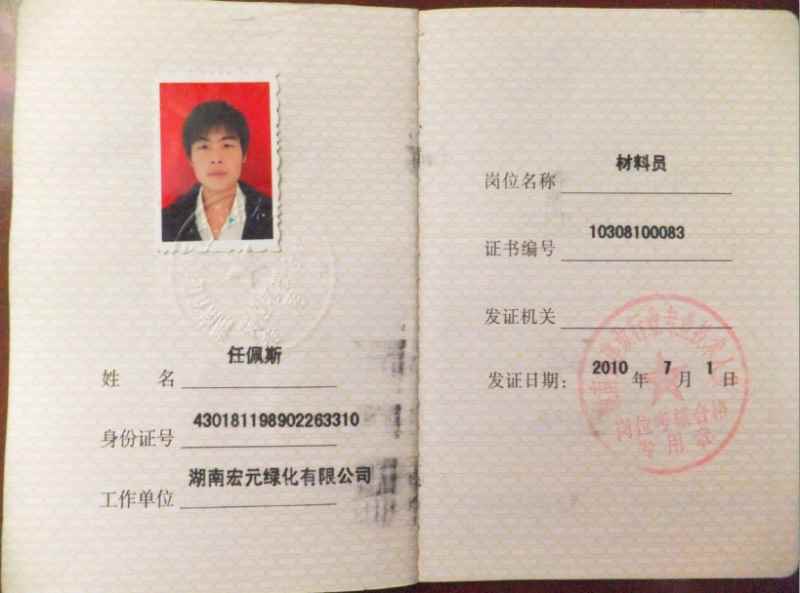 姓 名 任佩斯
身份证号 430181198902263310
工作单位 湖南宏元绿化有限公司
岗位名称 材料员
证书编号 10308100083
发证机关
发证日期: 2010 年 7 月 1 日
岗位考核合格
专用章